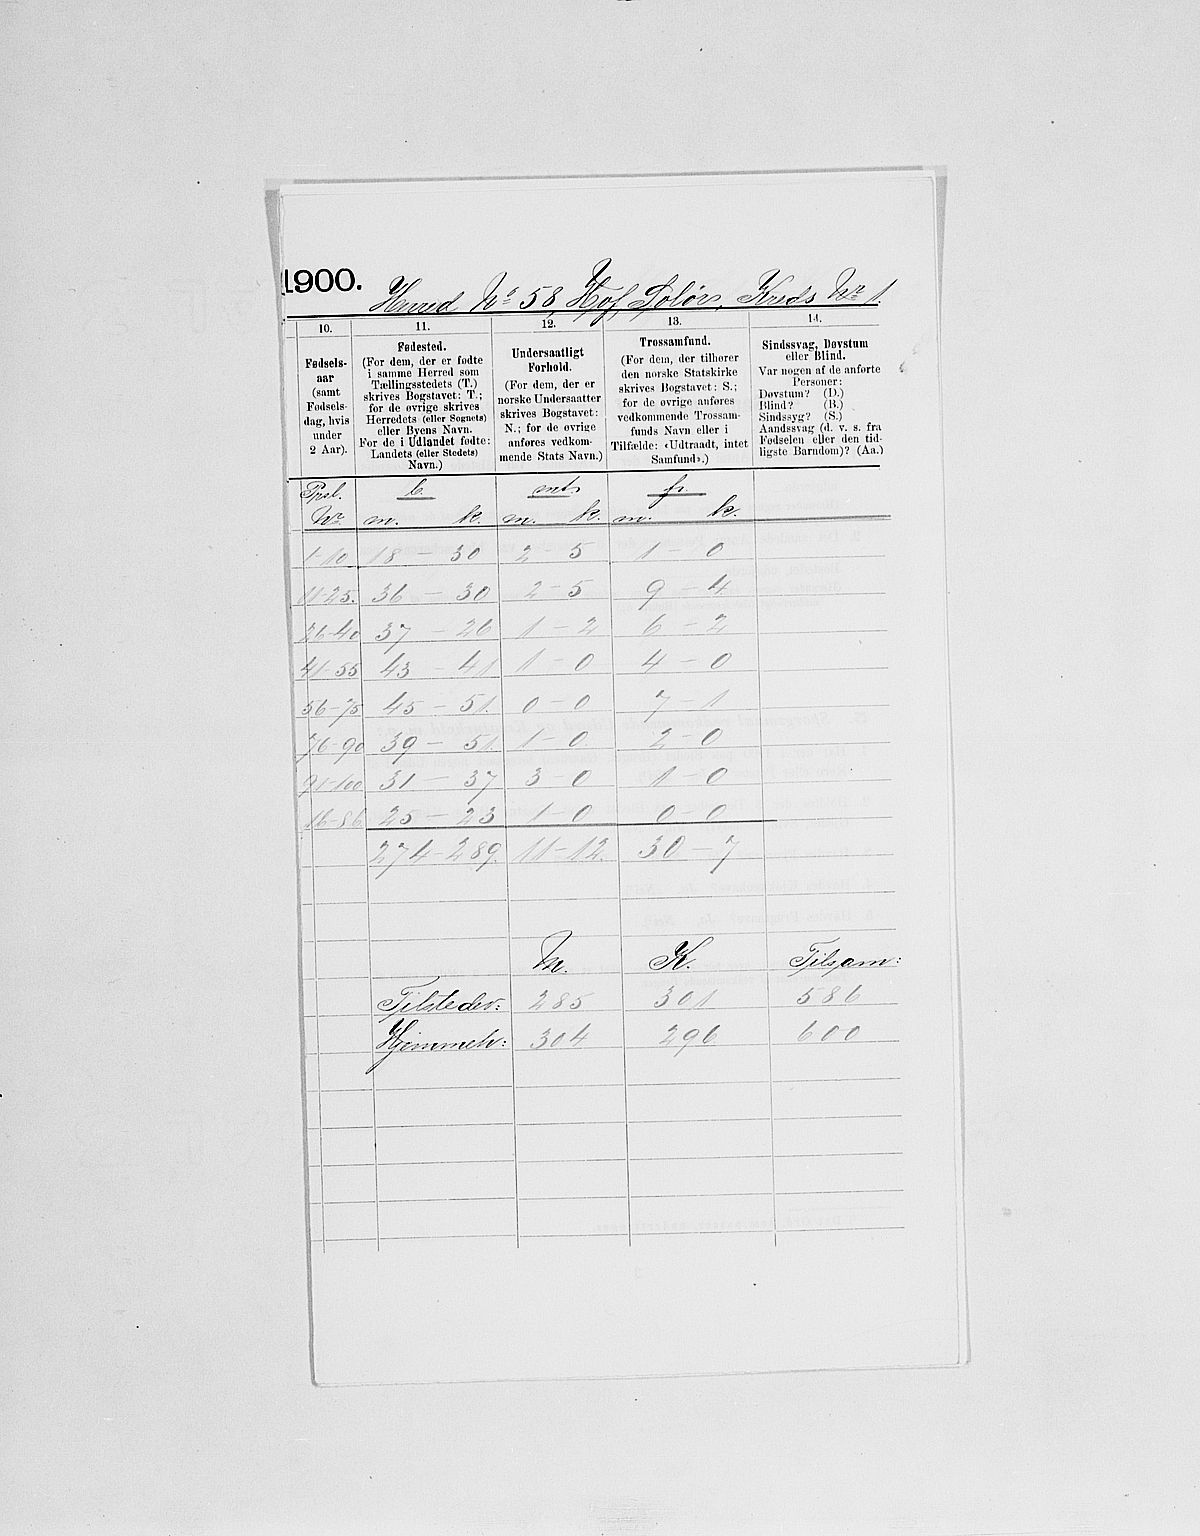 1900.
Herred No 58, Hof, Solør, Kreds Nr 1.
10. 11. 12. 13. 14.
Fødsels-
aar
(samt
Fødsels-
dag, hvis
under
2 Aar).
Fødested.
(For dem, der er fødte
i samme Herred som
Tællingsstedets (T.)
skrives Bogstavet: T.;
for de øvrige skrives
Herredets (eller Sognets)
eller Byens Navn.
For de i Udlandet fødte:
Landets (eller Stedets)
Navn.)
Undersaatligt
Forhold.
(For dem, der er
norske Undersaatter
skrives Bogstavet:
N.; for de øvrige
anføres vedkom-
mende Stats Navn.)
Trossamfund.
(For dem, der tilhører
den norske Statskirke
skrives Bogstavet: S.;
for de øvrige anføres
vedkommende Trossam-
funds Navn eller i
Tilfælde: «Udtraadt, intet
Samfund».)
Sindssvag, Døvstum
eller Blind.
Var nogen af de anførte
Personer:
Døvstum? (D.)
Blind? (B.)
Sindssyg? (S.)
Aandssvag (d. v. s. fra
Fødselen eller den tid-
ligste Barndom)? (Aa.)
Psl. b. mt. f.
Nr. m. k. m. k. m. k.
1-10 18 - 30 2 - 5 1 - 0
11-25. 36 - 30 2 - 5 9 - 4
26-40 37 - 26 1 - 2 6 - 2
41-55 43 - 41 1 - 0 4 - 0
56-75 45 - 51. 0 - 0 7 - 1
76-90 39 - 51. 1 - 0. 2 - 0
91-100 31 - 37 3 - 0 1 - 0
16-86 25 - 23 1 - 0 0 - 0
274-289. 11-12. 30 - 7
M. K. Tilsam:
Tilstedev: 285 301 586
Hjemmeh: 304 296 600